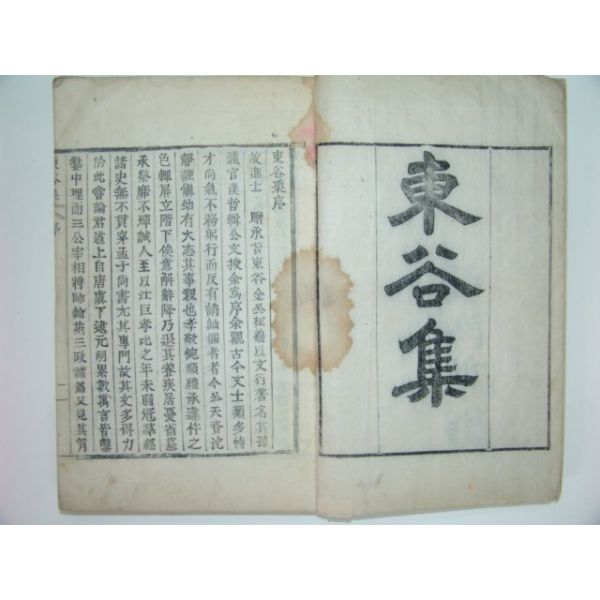 東谷集
東谷集序
故進士 贈承旨東谷金公 以文行著名其孫
議官達哲緝公文授余為序余觀古今文士類多恃
才尚氣不務躬行而反有 者今公天資沈
靜謹 幼有大志其事親也孝 順 承違忤之
色輒屏立階下使意解辭降乃退其養疾居憂省墓
承祭靡不殫誠人至以江巨孝比之年未弱冠 經
諸史無不貫穿孟子尚書尤其專門故其文多得力
於此嘗論君道上自唐虞下逮元明累數萬言皆鑿
鑿中理而三公宰相將帥翰英三政諸 又見其有